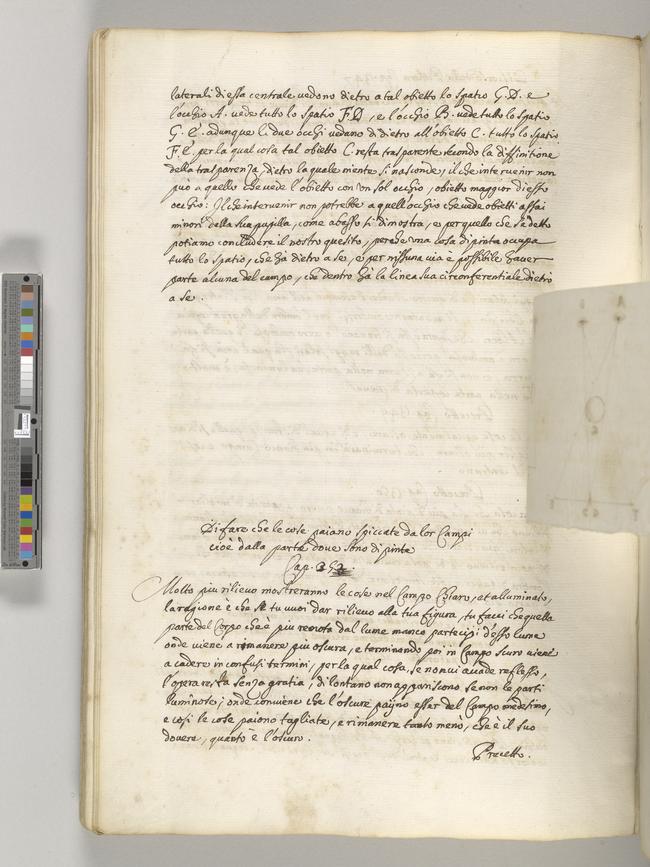 laterali di essa centrale vedono dietro a tal obietto lo spatio G. D. e
l'occhio A. vede tutto lo spatio F. D, e l'occhio B. vede tutto lo spatio
G. E. adunque li due occhi vedano di dietro all obietto C. tutto lo spatio
F. E. per la qual cosa tal obietto C. resta trasparente secondo la diffinitione
della trasparenza, dietro la quale niente si nasconde, il che intervenir non
può a quello che vede l'obietto con un sol occhio, obietto maggior di esso
occhio: Il che intervenir non potrebbe a quell occhio che vede obietti assai
minori della sua pupilla, come a basso si dimostra, e per quello che s'è detto
potiamo concludere il nostro quesito, perche una cosa dipinta occupa
tutto lo spatio, che ha dietro a se, e per nissuna via è possibile haver
parte alcuna del campo, che dentro hà la linea sua circonferentiale dietro
a se.
Di fare che le cose paiano spiccate da lor Campi
cioè dalla parte dove sono dipinte
Cap.
Molto piu rilievo mostreranno le cose nel Campo Chiaro, et alluminato,
la ragione è che se tu vuoi dar rilievo alla tua figura, tu facci che quella
parte del Corpo che è più remota dal lume manco partecipi d'esso lume
onde viene a rimanere più oscura, e terminando poi in Campo scuro viene
a cadere in confusi termini, per la qual cosa, se non vi accade reflesso,
l'opera resta senza gratia, di lontano non appariscono se non le parti
luminose; onde conviene che l'oscure pajno esser del Campo medesimo,
e cosi le cose paiono tagliate, e rimanere tanto meno, che è il suo
dovere, quanto è l'oscuro.
Precetto.
A